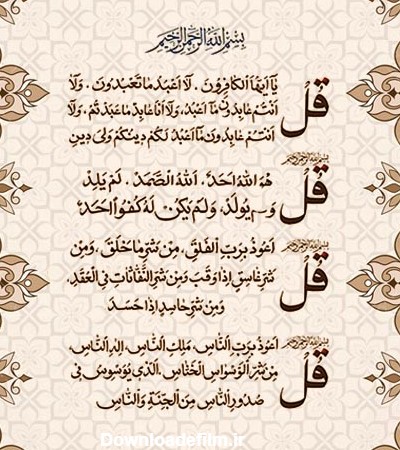 بسم الله الرحمن الرحيم
قُلْ
يَا أَيُّهَا الْكَافِرُونَ، لَا أَعْبُدُ مَا تَعْبُدُونَ، وَلَا
أَنْتُمْ عَابِدُونَ مَا أَعْبُدُ، وَلَا أَنَا عَابِدٌ مَا عَبَدْتُمْ، وَلَا
أَنْتُمْ عَابِدُونَ مَا أَعْبُدُ لَكُمْ دِينُكُمْ وَلِيَ دِينِ
بسم الله الرحمن الرحيم
قُلْ
هُوَ اللهُ أَحَدٌ، اَللهُ الصَّمَدُ، لَمْ يَلِدْ
وَلَمْ يُولَدْ، وَلَمْ يَكُنْ لَهُ كُفُوًا أَحَدٌ
بسم الله الرحمن الرحيم
قُلْ
أَعُوذُ بِرَبِّ الْفَلَقِ، مِنْ شَرِّ مَا خَلَقَ، وَمِنْ
شَرِّ غَاسِقٍ إِذَا وَقَبَ وَمِنْ شَرِّ النَّفَّاثَاتِ فِي الْعُقَدِ،
وَمِنْ شَرِّ حَاسِدٍ إِذَا حَسَدَ
بسم الله الرحمن الرحيم
قُلْ
أَعُوذُ بِرَبِّ النَّاسِ، مَلِكِ النَّاسِ، إِلَهِ النَّاسِ،
مِنْ شَرِّ الْوَسْوَاسِ الْخَنَّاسِ، الَّذِي يُوَسْوِسُ فِي
صُدُورِ النَّاسِ مِنَ الْجِنَّةِ وَالنَّاسِ
Downloadefilm.ir